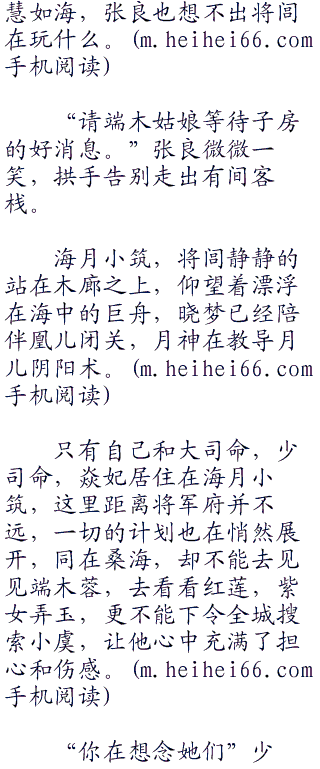 慧如海，张良也想不出将闾
在玩什么。(m.heihei66.com
手机阅读)
“请端木姑娘等待子房
的好消息。”张良微微一
笑，拱手告别走出有间客
栈。
海月小筑，将闾静静的
站在木廊之上，仰望着漂浮
在海中的巨舟，晓梦已经陪
伴凰儿闭关，月神在教导月
儿阴阳术。(m.heihei66.com
手机阅读)
只有自己和大司命，少
司命，焱妃居住在海月小
筑，这里距离将军府并不
远，一切的计划也在悄然展
开，同在桑海，却不能去见
见端木蓉，去看看红莲，紫
女弄玉，更不能下令全城搜
索小虞，让他心中充满了担
心和伤感。(m.heihei66.com
手机阅读)
“你在想念她们”少